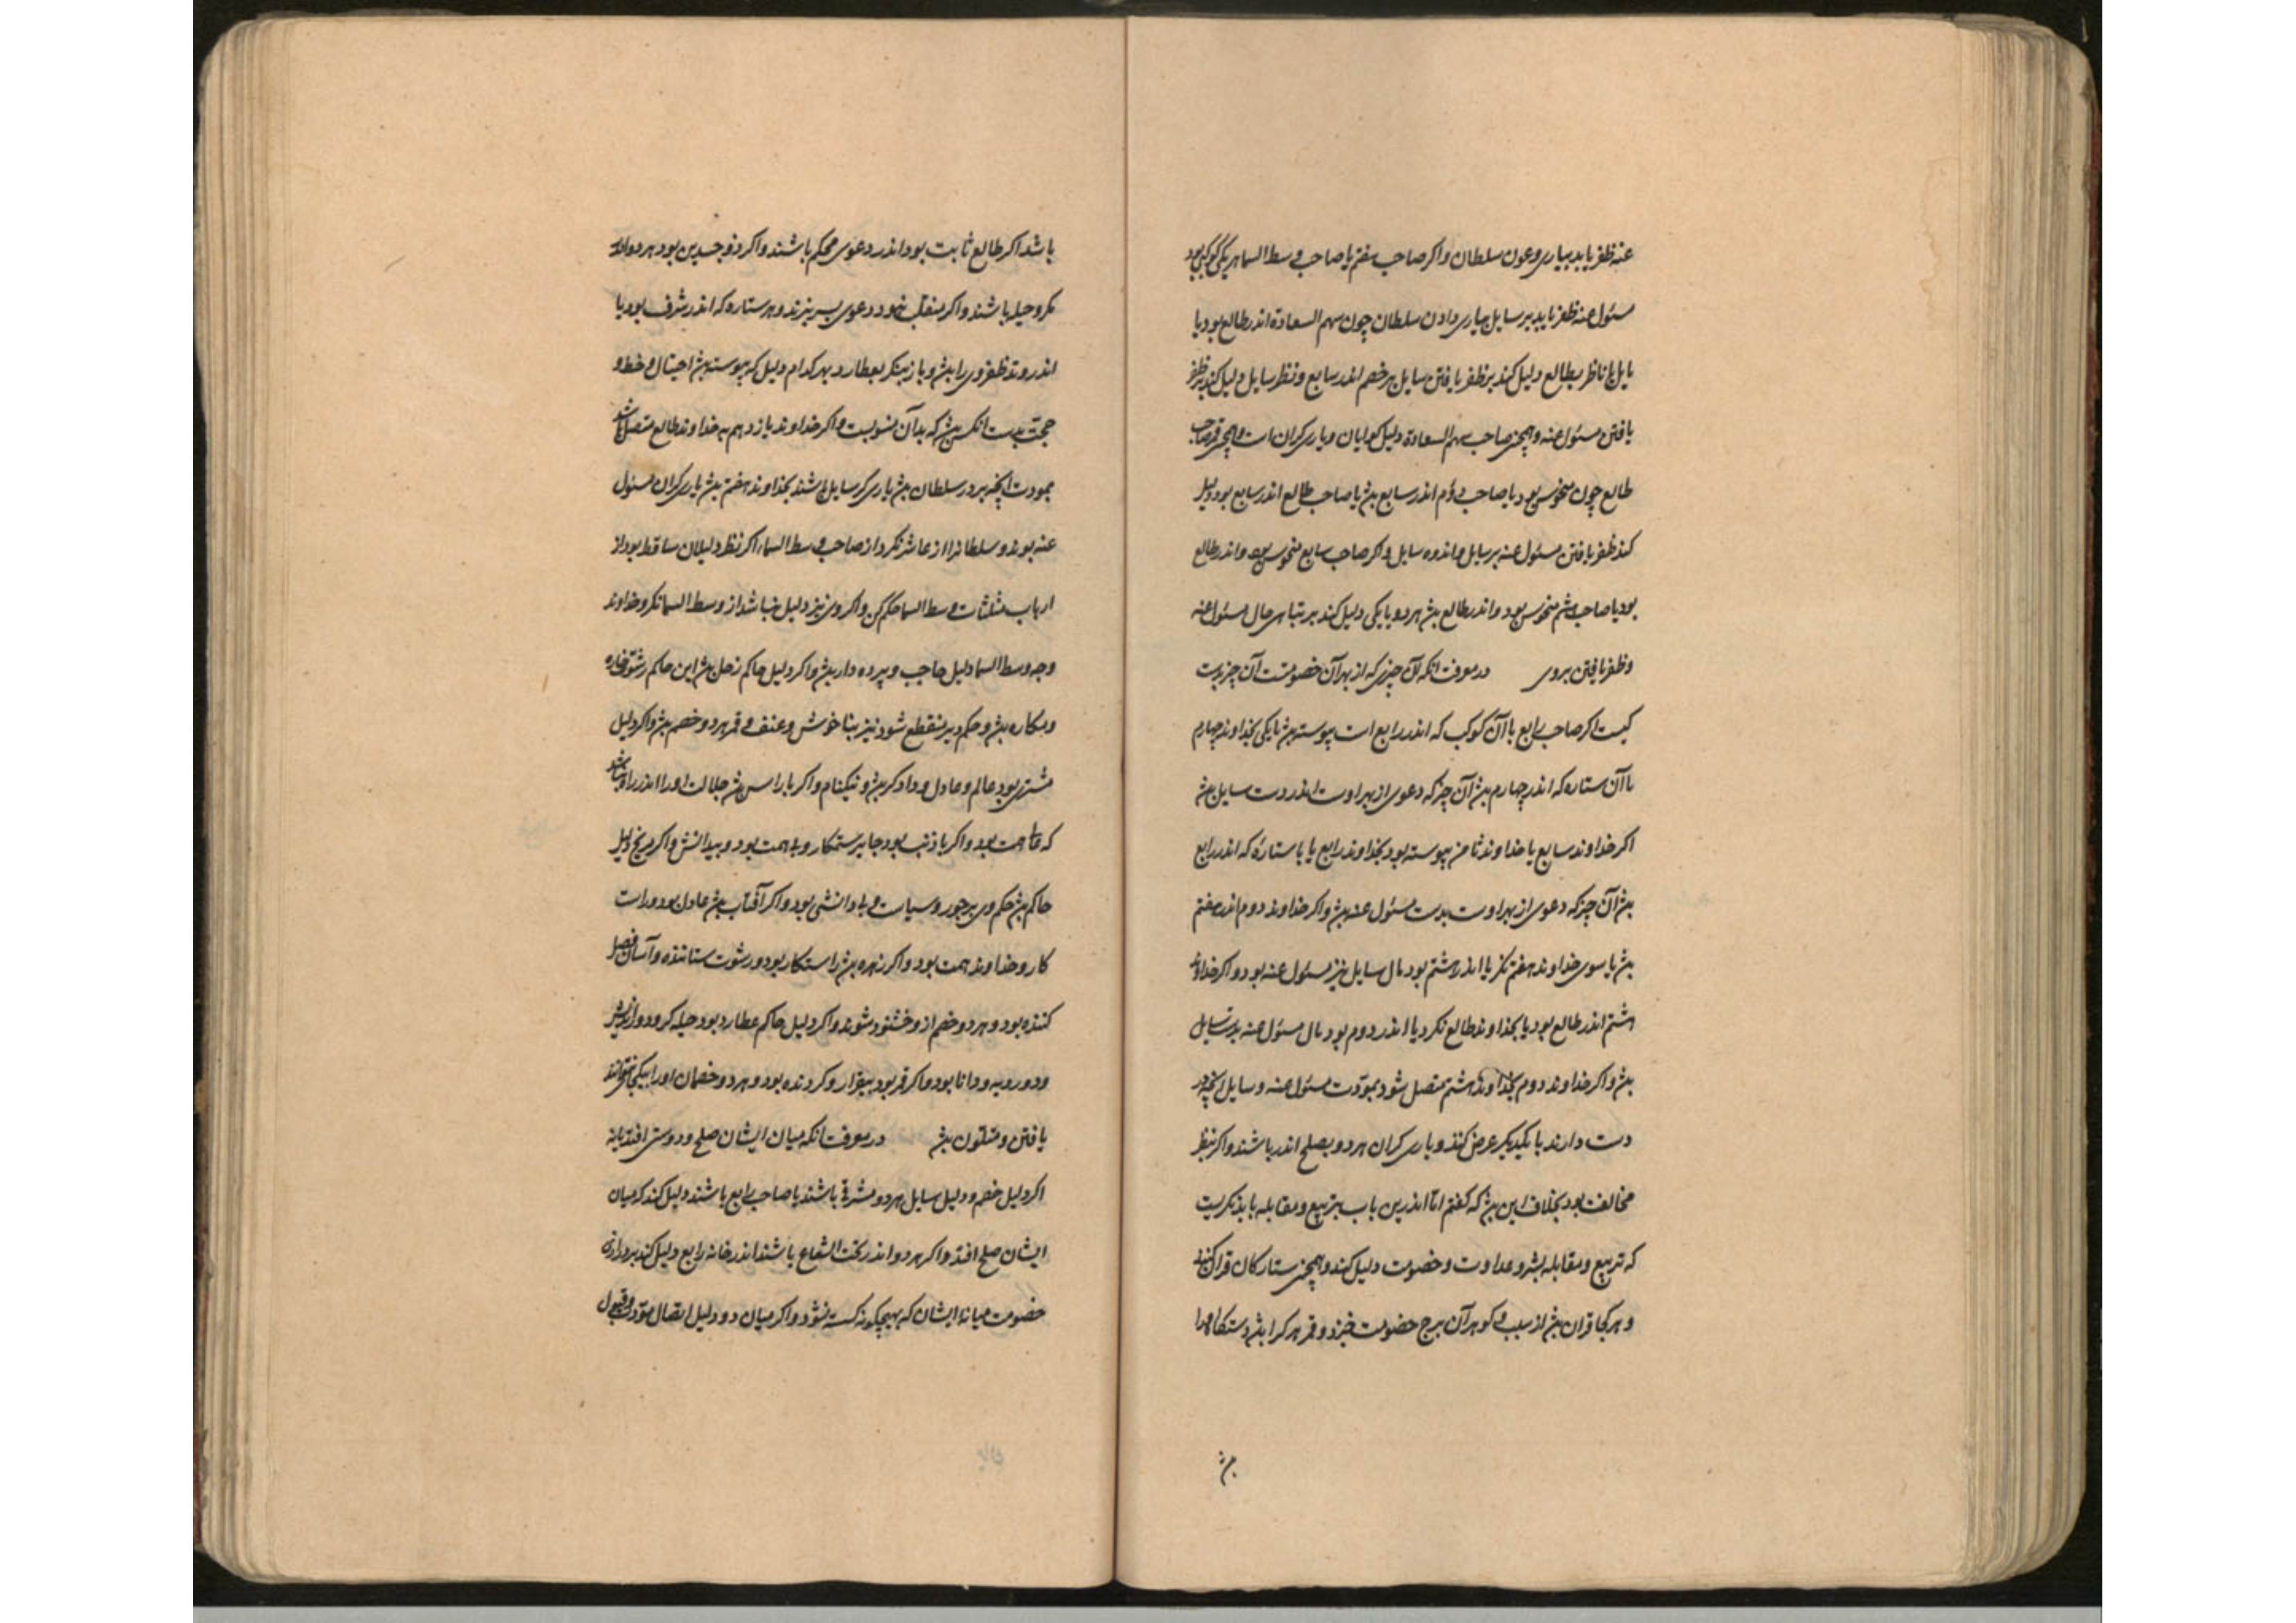 عنه ظفر یابد بیاری و عون سلطان و اکر صاحب هفتم یا صاحب وسط السما بریکی کوکبی بود
مسئول عنه ظفر یابد بر سایل بیاری دادن سلطان چون سهم السعادة اندر طالع بود یا
یا ناظر بطالع دلیل کند بر ظفر یافتن سایل بر خصم اندر سابع و نظر سایل دلیل کند بر ظفر
یافتن مسئول عنه و همچنین صاحب سهم السعادة دلیل کوایان و یاری کران است و همچنین قمر صاحب
طالع چون منحوس بود یا صاحب دوم اندر سابع بش یا صاحب طالع اندر سابع بود دلیل
کند ظفر یافتن مسئول عنه بر سایل و اندوه سایل و اکر صاحب سابع منحوس بود و اندر طالع
بود یا صاحب هشتم منحوس بود و اندر طالع بش هر دو یا یکی دلیل کند بر تباهی حال مسئول عنه
و ظفر یافتن بر وی در معرفت انکه آن چیزی که از بهر آن خصومتست آن چیز بدست
کیست اکر صاحب رابع یا آن کوکب که اندر رابع است پیوسته بش یا یکی بخداوند چهارم
یا آن ستاره که اندر چهارم بش آن چیز که دعوی از بهر اوست اندر دست سایل بش
اکر خداوند سابع یا خداوند ثامن پیوسته بود بخداوند رابع یا با ستارۀ که اندر رابع
بش آن چیز که دعوی از بهر اوست بدست مسئول عنه بش و اکر خداوند دوم اندر هفتم
بش یا سوی خداوند هفتم نکرد یا اندر هشتم بود مال سایل نیز مسئول عنه بود و اکر خداوند
هشتم اندر طالع بود یا بخداوند طالع نکرد یا اندر دوم بود مال مسئول عنه بدست سایل
بش و اکر خداوند دوم بخداوند هشتم متصل شود بمودت مسئول عنه و سایل انچه در
دست دارند با یکدیکر عرض کنند و یاری کران هر دو بصلح اندر باشند و اکر بنظر
مخالفت بود بخلاف این بش که کفتم اما اندرین باب بتربیع و مقابله باید نکریست
که تربیع و مقابله بشر و عداوت و خصومت دلیل کند و همچنین ستارکان قران کنند
و هر کجا قران بش از سبب و کوهر آن برج خصومت خیزد و قمر هر کرا بش دستکاه او را
بش
باشد اکر طالع ثابت بود اندر دعوی محکم باشند و اکر ذوجسدین بود هر دو اندر
مکر و حیله باشند و اکر منقلب بود دعوی بسر نبرند و هر ستاره که اندر شرف بود یا
اندر وتد ظفر وی را بش و باز بنکر بعطارد بهر کدام دلیل که پیوسته بش احتیال و خط و
حجت بدست انکس بش که بدآن منسوبست و اکر خداوند یازدهم به خداوند طالع متصل باشد
بمودت انچه بر در سلطان بش یاری کر سایل باشند بخداوند هفتم بش یاری کران مسئول
عنه بوند و سلطانرا از عاشر نکرد از صاحب وسط السماء اکر نظر دلیلان ساقط بود از
ارباب مثلثات وسط السما حکم کن و اکر وی نیز دلیل نباشد از وسط السما نکر و خداوند
وجه وسط السما دلیل حاجب و پرده دار بش و اکر دلیل حاکم زحل بش این حاکم رشوتخاره
و مکاره بش و حکم دیر منقطع شود نیز بناخوش و عنف و قهر هر دو خصم بش و اکر دلیل
مشتری بود عالم و عادل و دادکر بش و نیکنام و اکر با راس بش جلالت او را اندر راوباشد
که همت بود و اکر با ذنب بود جابر ستمکار و بد همت بود و بیدانش و اکر مریخ دلیل
حاکم بش حکم وی بر جور و سیاست و بی دانشی بود و اکر آفتاب بش عادل بود و راست
کار و خداوند همت بود و اکر زهره بش راستکار بود و رشوت ستاننده و آسان فصل
کننده بود و هر دو خصم از و خشنود شوند و اکر دلیل حاکم عطارد بود حیله کر و دور اندیش
و دو رویه و دانا بود و اکر قمر بود بیقرار و کردنده بود و هر دو خصمان او را بیکجا نتوانند
یافتن و متلون بش در معرفت انکه میان ایشان صلح و دوستی افتد یا نه
اکر دلیل خصم و دلیل سایل هر دو مشرقی باشند یا صاحب رابع باشند دلیل کند که میان
ایشان صلح افتد و اکر هر دو اندر تحت الشعاع باشند اندر خانه رابع دلیل کند بر درازی
خصومت میانۀ ایشان که بهیچکونه کسسته نشود و اکر میان دو دلیل اتصال مودت و قبول